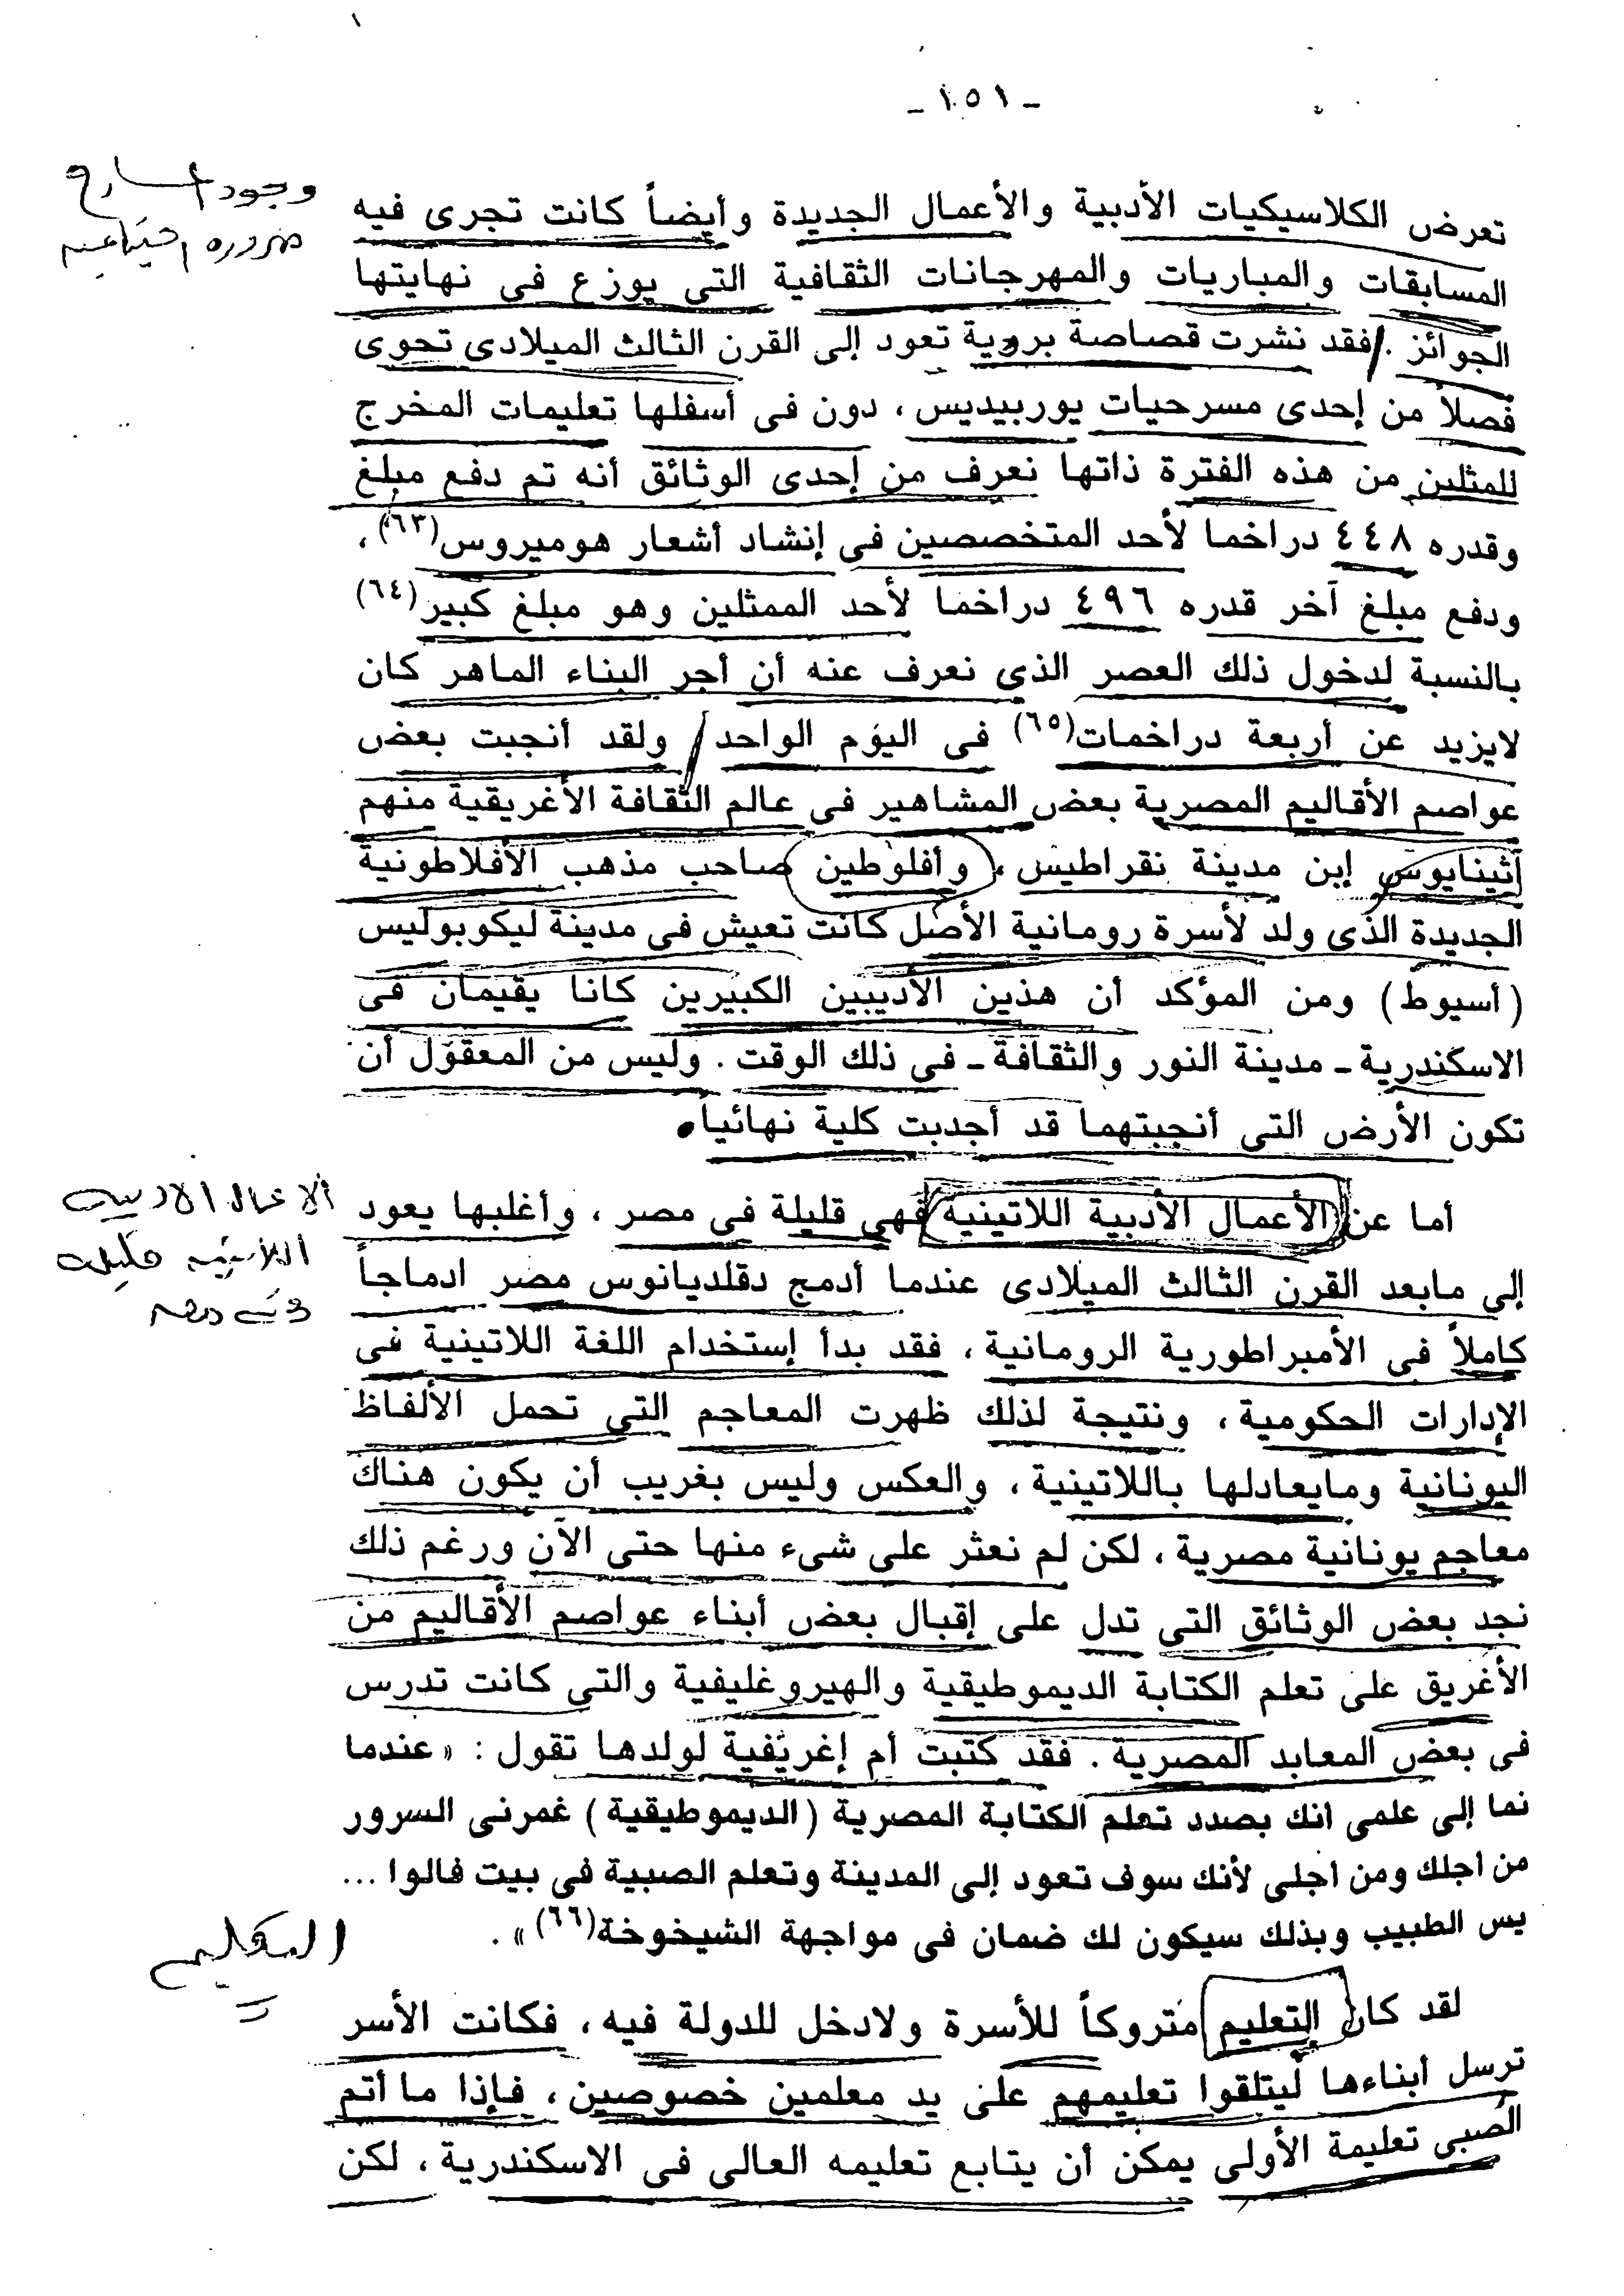 - ١٥١ -
وجود المسارح
ضرورة اجتماعية
تعرض الكلاسيكيات الأدبية والأعمال الجديدة وأيضاً كانت تجرى فيه
المسابقات والمباريات والمهرجانات الثقافية التى يوزع فى نهايتها
الجوائز . فقد نشرت قصاصة بروية تعود إلى القرن الثالث الميلادى تحوى
فصلاً من إحدى مسرحيات يوربيديس ، دون فى أسفلها تعليمات المخرج
للمثلين من هذه الفترة ذاتها نعرف من إحدى الوثائق أنه تم دفع مبلغ
وقدره ٤٤٨ دراخما لأحد المتخصصين فى إنشاد أشعار هوميروس(٦٣) ،
ودفع مبلغ آخر قدره ٤٩٦ دراخما لأحد الممثلين وهو مبلغ كبير(٦٤)
بالنسبة لدخول ذلك العصر الذى نعرف عنه أن أجر البناء الماهر كان
لايزيد عن أربعة دراخمات(٦٥) فى اليوم الواحد ولقد أنجبت بعض
عواصم الأقاليم المصرية بعض المشاهير فى عالم الثقافة الأغريقية منهم
أثينايوس إبن مدينة نقراطيس ، وأفلوطين صاحب مذهب الأفلاطونية
الجديدة الذى ولد لأسرة رومانية الأصل كانت تعيش فى مدينة ليكوبوليس
(أسيوط) ومن المؤكد أن هذين الأديبين الكبيرين كانا يقيمان فى
الاسكندرية ـ مدينة النور والثقافة ـ فى ذلك الوقت . وليس من المعقول أن
تكون الأرض التى أنجبتهما قد أجدبت كلية نهائياً.
الاعمال الادبية
اللاتينية قليلة
فى مصر
أما عن الأعمال الأدبية اللاتينية فهى قليلة فى مصر ، وأغلبها يعود
إلى مابعد القرن الثالث الميلادى عندما أدمج دقلديانوس مصر ادماجاً
كاملاً فى الأمبراطورية الرومانية ، فقد بدأ إستخدام اللغة اللاتينية فى
الإدارات الحكومية ، ونتيجة لذلك ظهرت المعاجم التى تحمل الألفاظ
اليونانية ومايعادلها باللاتينية ، والعكس وليس بغريب أن يكون هناك
معاجم يونانية مصرية ، لكن لم نعثر على شىء منها حتى الآن ورغم ذلك
نجد بعض الوثائق التى تدل على إقبال بعض أبناء عواصم الأقاليم من
الأغريق على تعلم الكتابة الديموطيقية والهيروغليفية والتى كانت تدرس
فى بعض المعابد المصرية . فقد كتبت أم إغريقية لولدها تقول : « عندما
نما إلى علمى أنك بصدد تعلم الكتابة المصرية (الديموطيقية) غمرنى السرور
من أجلك ومن أجلى لأنك سوف تعود إلى المدينة وتعلم الصبية فى بيت فالوا ...
يس الطبيب وبذلك سيكون لك ضمان فى مواجهة الشيخوخة(٦٦) » .
التعليم
لقد كان التعليم متروكاً للأسرة ولادخل للدولة فيه ، فكانت الأسر
ترسل أبناءها ليتلقوا تعليمهم على يد معلمين خصوصين ، فإذا ما أتم
الصبى تعليمة الأولى يمكن أن يتابع تعليمه العالى فى الاسكندرية ، لكن